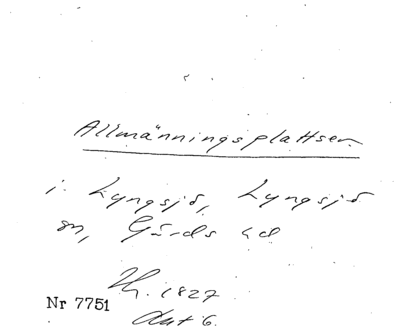 Allmänningsplattsen
i Lyngsjö, Lyngsjö
sn, Gärds hd
Th. 1827
Nr 7751
Akt 6.